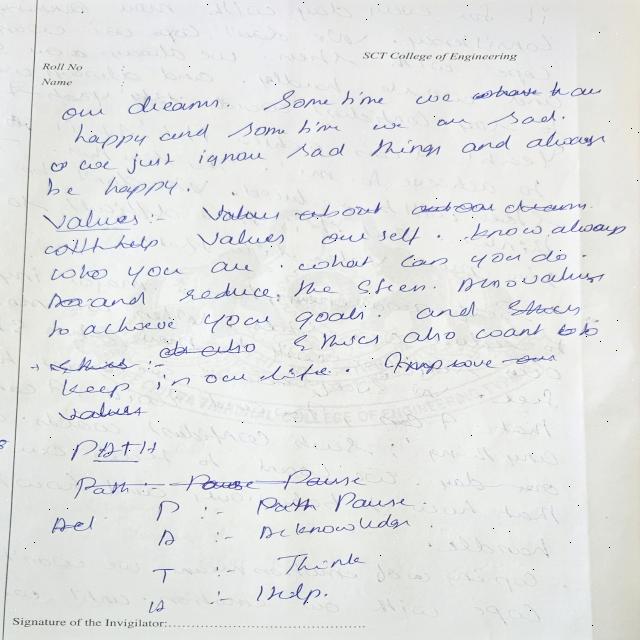 Roll No
SCT College of Engineering
Name
our dreams. Some time we are
happy and some time we are sad.
we just ignore sad things and always
be happy.
Values :- Values about our dreams
Values our self. know always
who you are. what can you do.
and reduce the stress.
to achieve your goals. and
also Ethics also want to
keep in our life. Improve our
values
PATH
Path :- Pause Pause
P :- Path Pause.
A :- Acknowledge
T :- Think
H :- Help.
Signature of the Invigilator: